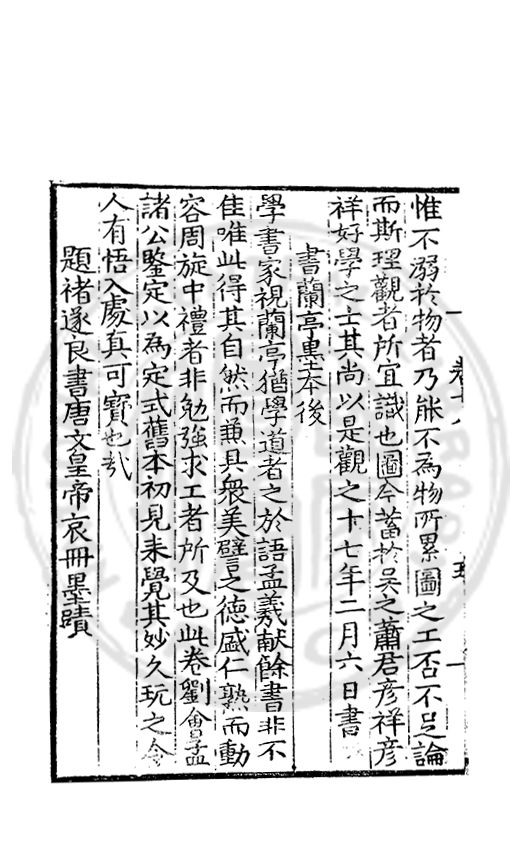 惟不溺於物者乃能不為物所累圖之工否不足論
而斯理觀者所宜識也圖今蓄於吳之蕭君彦祥彦
祥好學之士其尚以是觀之十七年二月六日書
書蘭亭墨本後
學書家視蘭亭猶學道者之於語孟羲献餘書非不
佳唯此得其自然而兼具衆美譬之德盛仁熟而動
容周旋中禮者非勉強求工者所及也此卷劉會孟
諸公鑒定以為定式舊本初見未覺其妙久玩之令
人有悟入處真可寶也哉
題褚遂良書唐文皇帝哀冊墨蹟